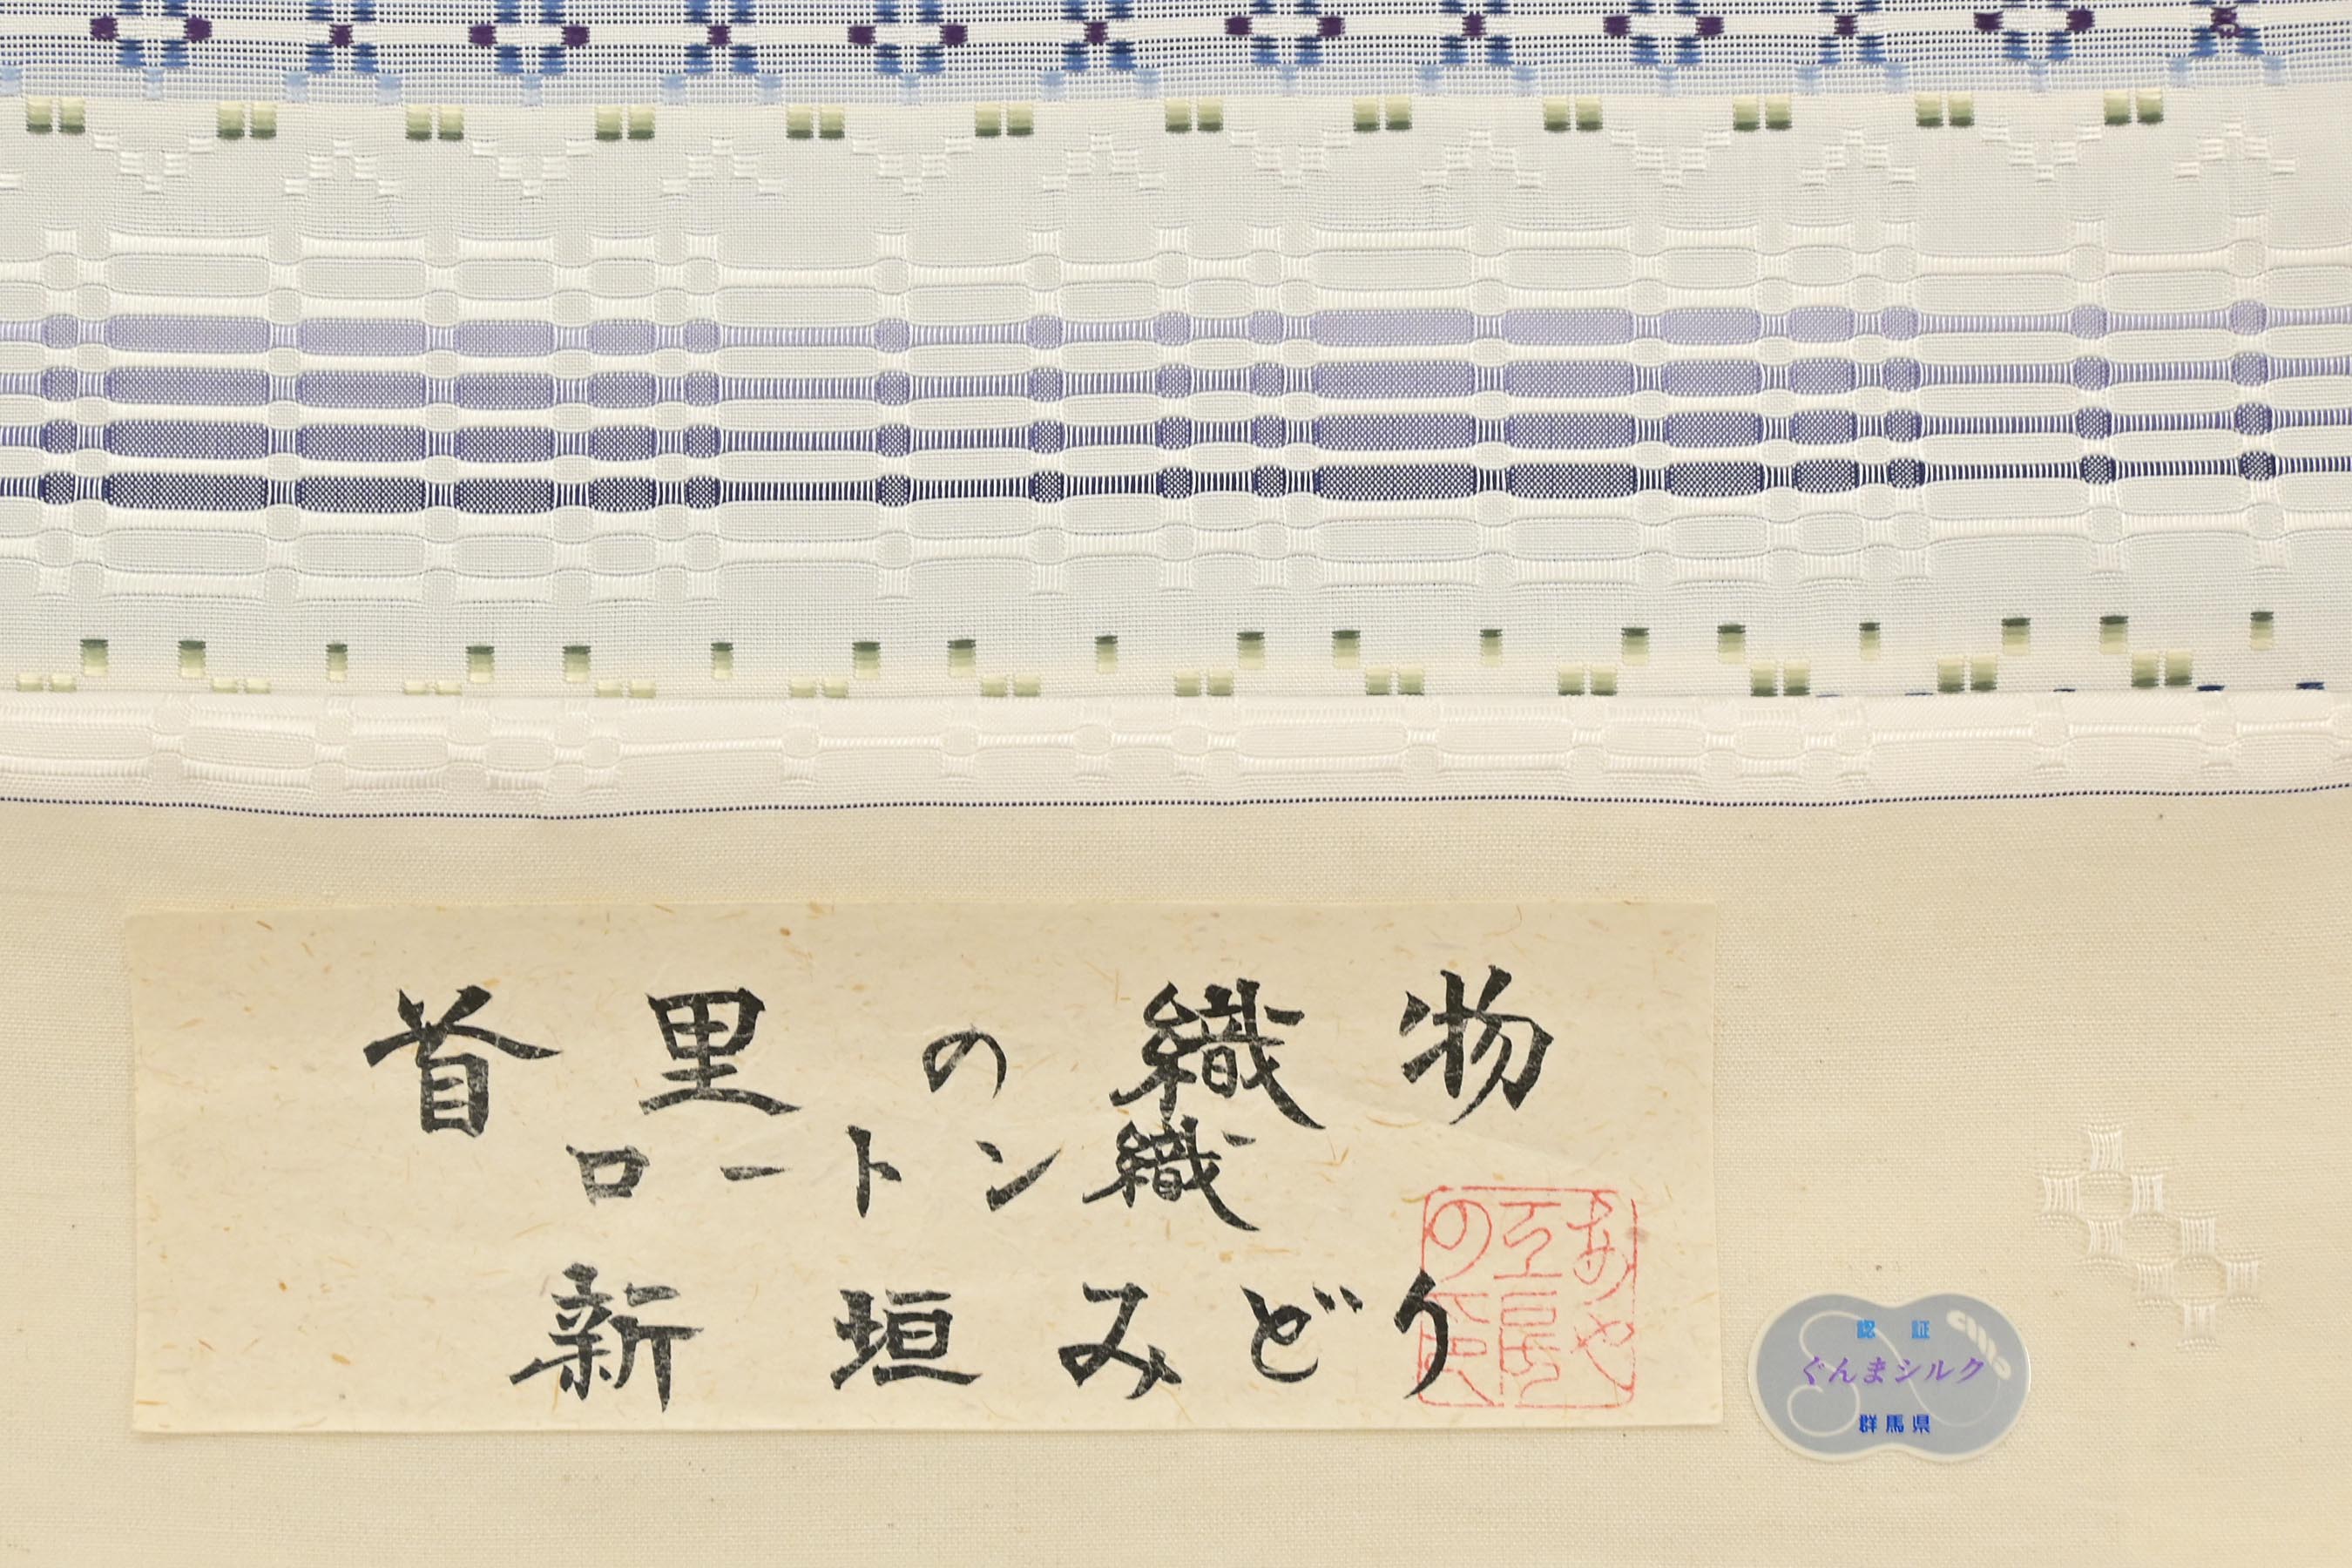 首里の織物
ロートン織
新垣みどり
認証
ぐんまシルク
群馬県